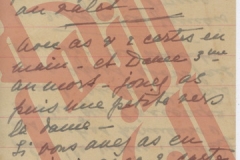 au valet —
avec as et 2 cartes en
main - et Dame 3me
au mort - jouez as
puis une petite vers
la dame -
Si vous avez as en